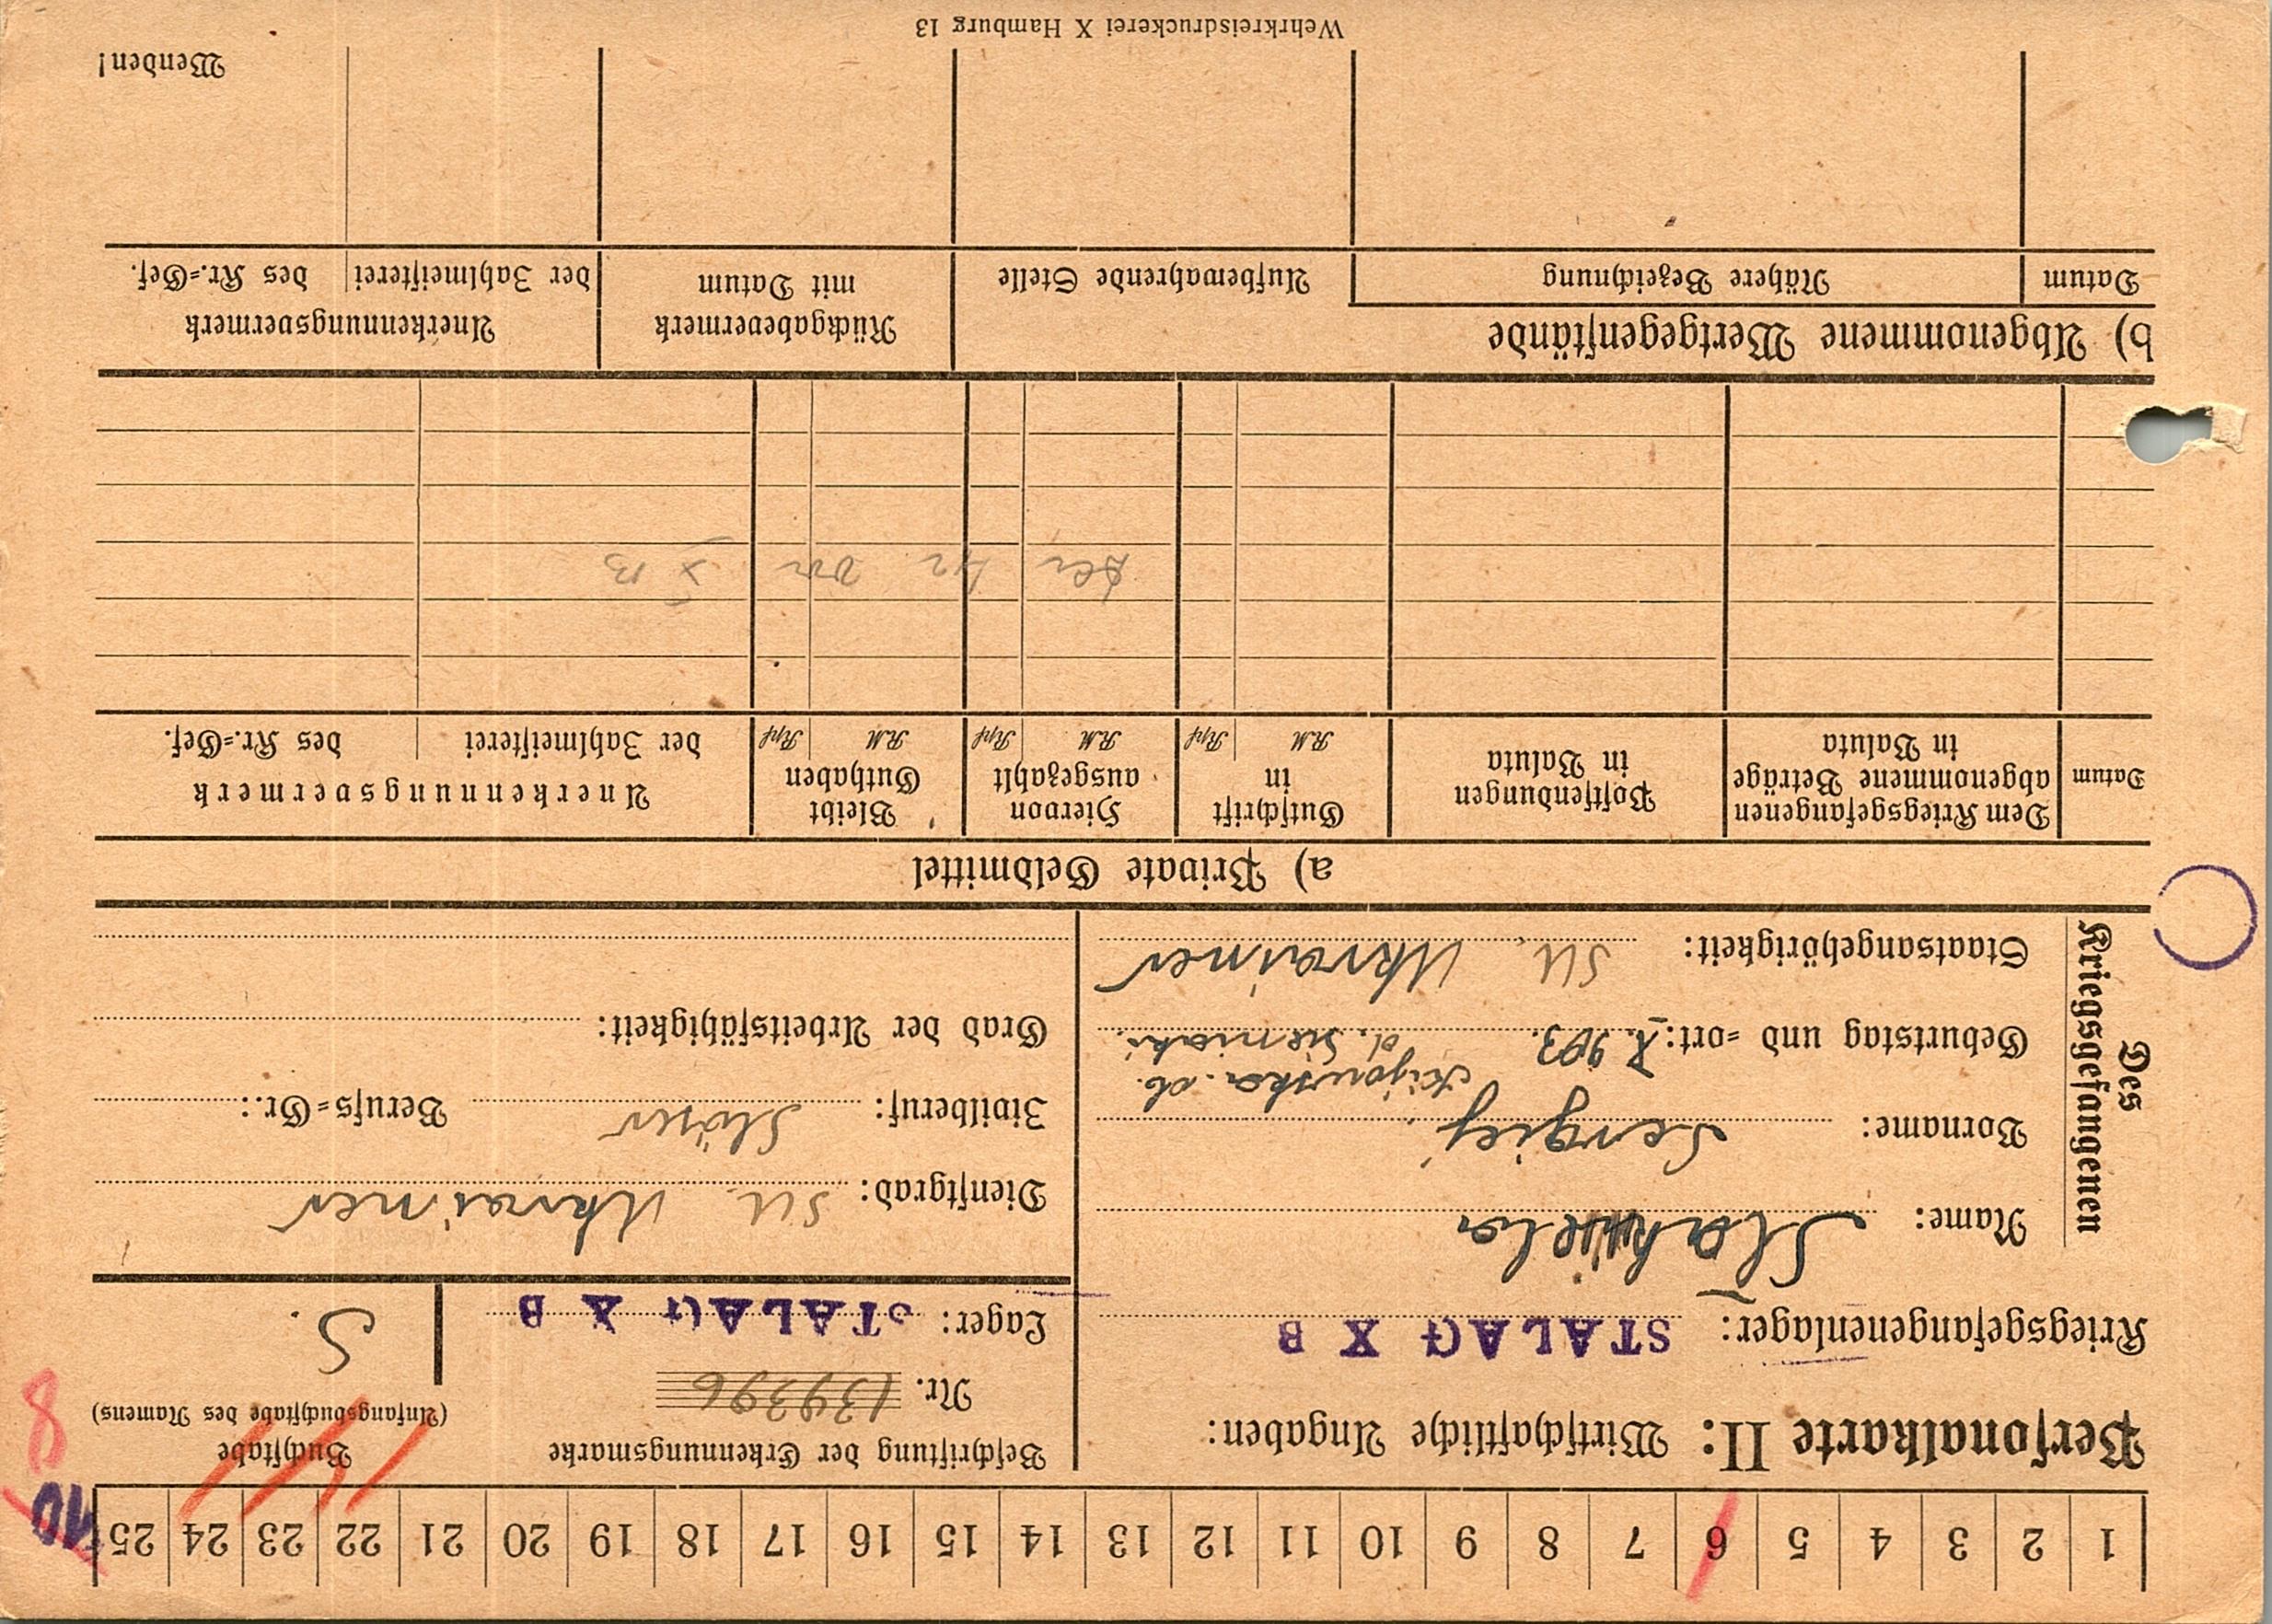 1 2 3 4 5 6 7 8 9 10 11 12 13 14 15 16 17 18 19 20 21 22 23 24 25
10
8
Personalkarte II: Wirtschaftliche Angaben:
Beschriftung der Erkennungsmarke
Nr. 139396
Buchstabe
(Anfangsbuchstabe des Namens)
S.
Kriegsgefangenenlager: STALAG X B
Lager: STALAG X B
Des Kriegsgefangenen
Name:
Vorname: Sergiej
Kijowska. ob.
Geburtstag und =ort: X. 903. d. Sieniaki.
Staatsangehörigkeit: SU. Ukrainer
Dienstgrad: SU. Ukrainer
Zivilberuf: Berufs=Gr.:
Grad der Arbeitsfähigkeit:
a) Private Geldmittel
Datum
Dem Kriegsgefangenen abgenommene Beträge in Valuta
Postsendungen in Valuta
Gutschrift in RM Rpf
Hiervon ausgezahlt RM Rpf
Bleibt Guthaben RM Rpf
Anerkennungsvermerk
der Zahlmeisterei des Kr.=Gef.
X B
b) Abgenommene Wertgegenstände
Datum
Nähere Bezeichnung
Aufbewahrende Stelle
Rückgabevermerk mit Datum
Anerkennungsvermerk
der Zahlmeisterei des Kr.=Gef.
Wenden!
Wehrkreisdruckerei X Hamburg 13